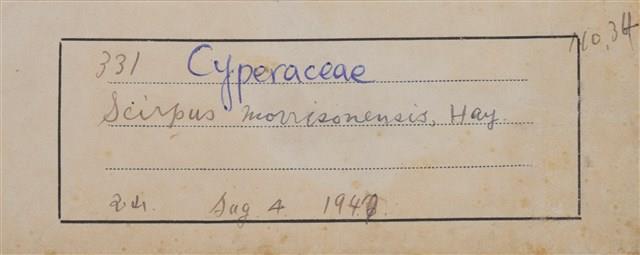 No. 34
331 Cyperaceae
Scirpus morrisonensis, Hay.
24. Aug 4 194